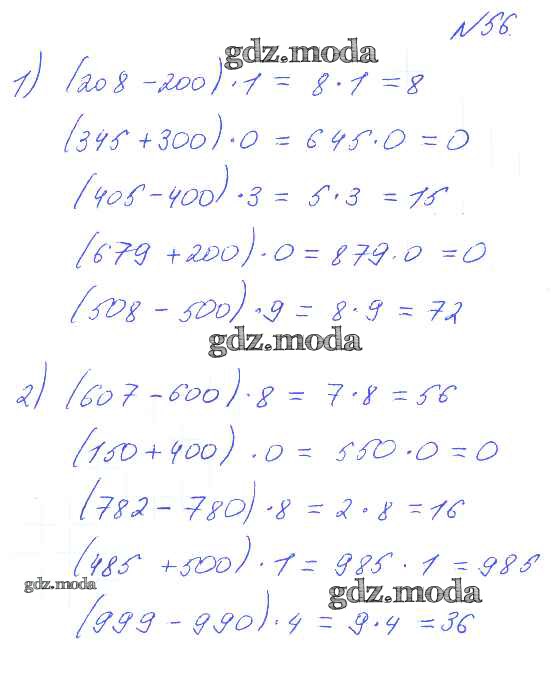 №56.
gdz.moda
1) (208 - 200) · 1 = 8 · 1 = 8
(345 + 300) · 0 = 645 · 0 = 0
(405 - 400) · 3 = 5 · 3 = 15
(679 + 200) · 0 = 879 · 0 = 0
(508 - 500) · 9 = 8 · 9 = 72
gdz.moda
2) (607 - 600) · 8 = 7 · 8 = 56
(150 + 400) · 0 = 550 · 0 = 0
(782 - 780) · 8 = 2 · 8 = 16
(485 + 500) · 1 = 985 · 1 = 985
gdz.moda
gdz.moda
(999 - 990) · 4 = 9 · 4 = 36